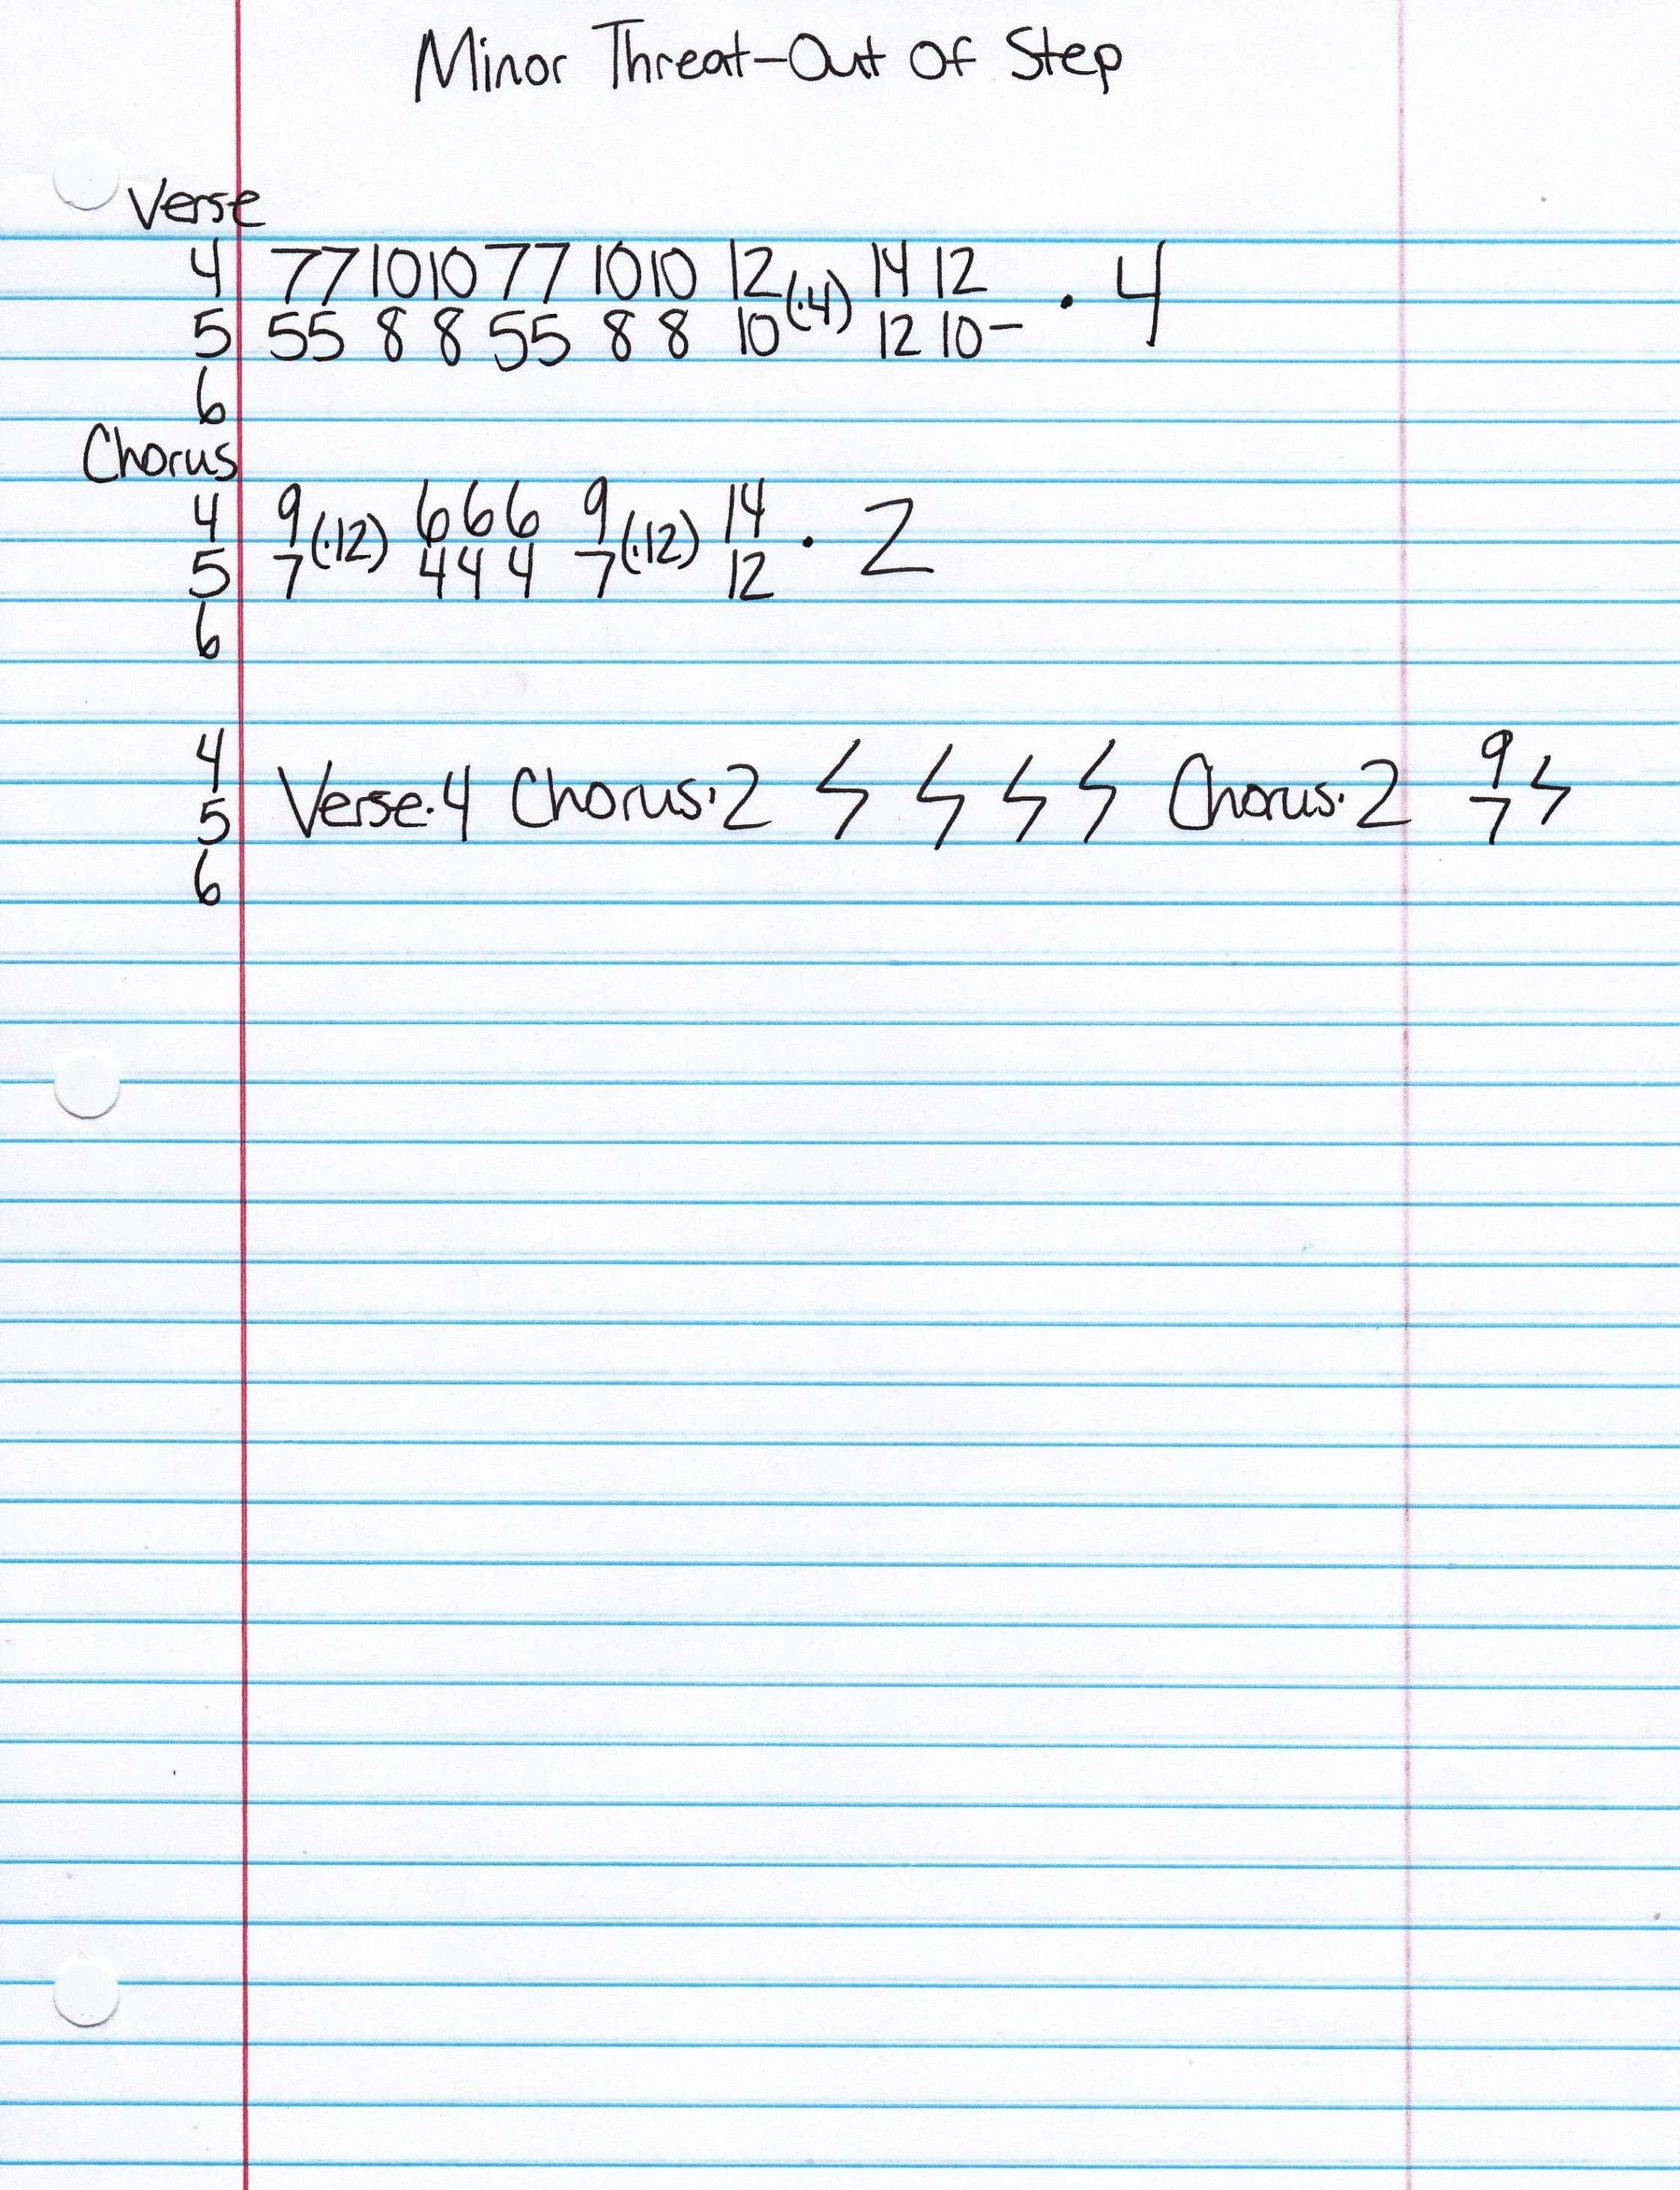 Minor Threat-Out Of Step
Verse
4 77 10 10 77 10 10 12 (·4) 14 12 · 4
5 55 8 8 55 8 8 10 12 10-
6
Chorus
4 9 (·12) 6 6 6 9 (·12) 14 · 2
5 7 4 4 4 7 12
6
4 9
5 Verse·4 Chorus·2 Chorus·2 7
6